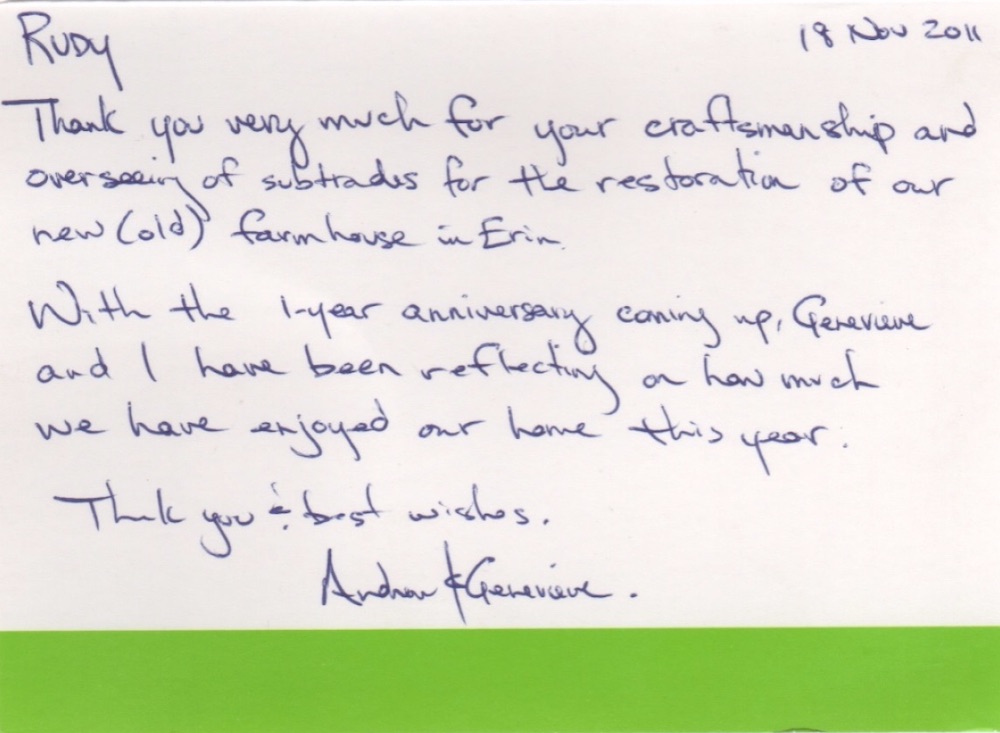 RUDY
18 Nov 2011
Thank you very much for your craftsmanship and
overseeing of subtrades for the restoration of our
new (old) farmhouse in Erin.
With the 1-year anniversary coming up, Genevieve
and I have been reflecting on how much
we have enjoyed our home this year.
Thank you & best wishes.
Andrew & Genevieve.